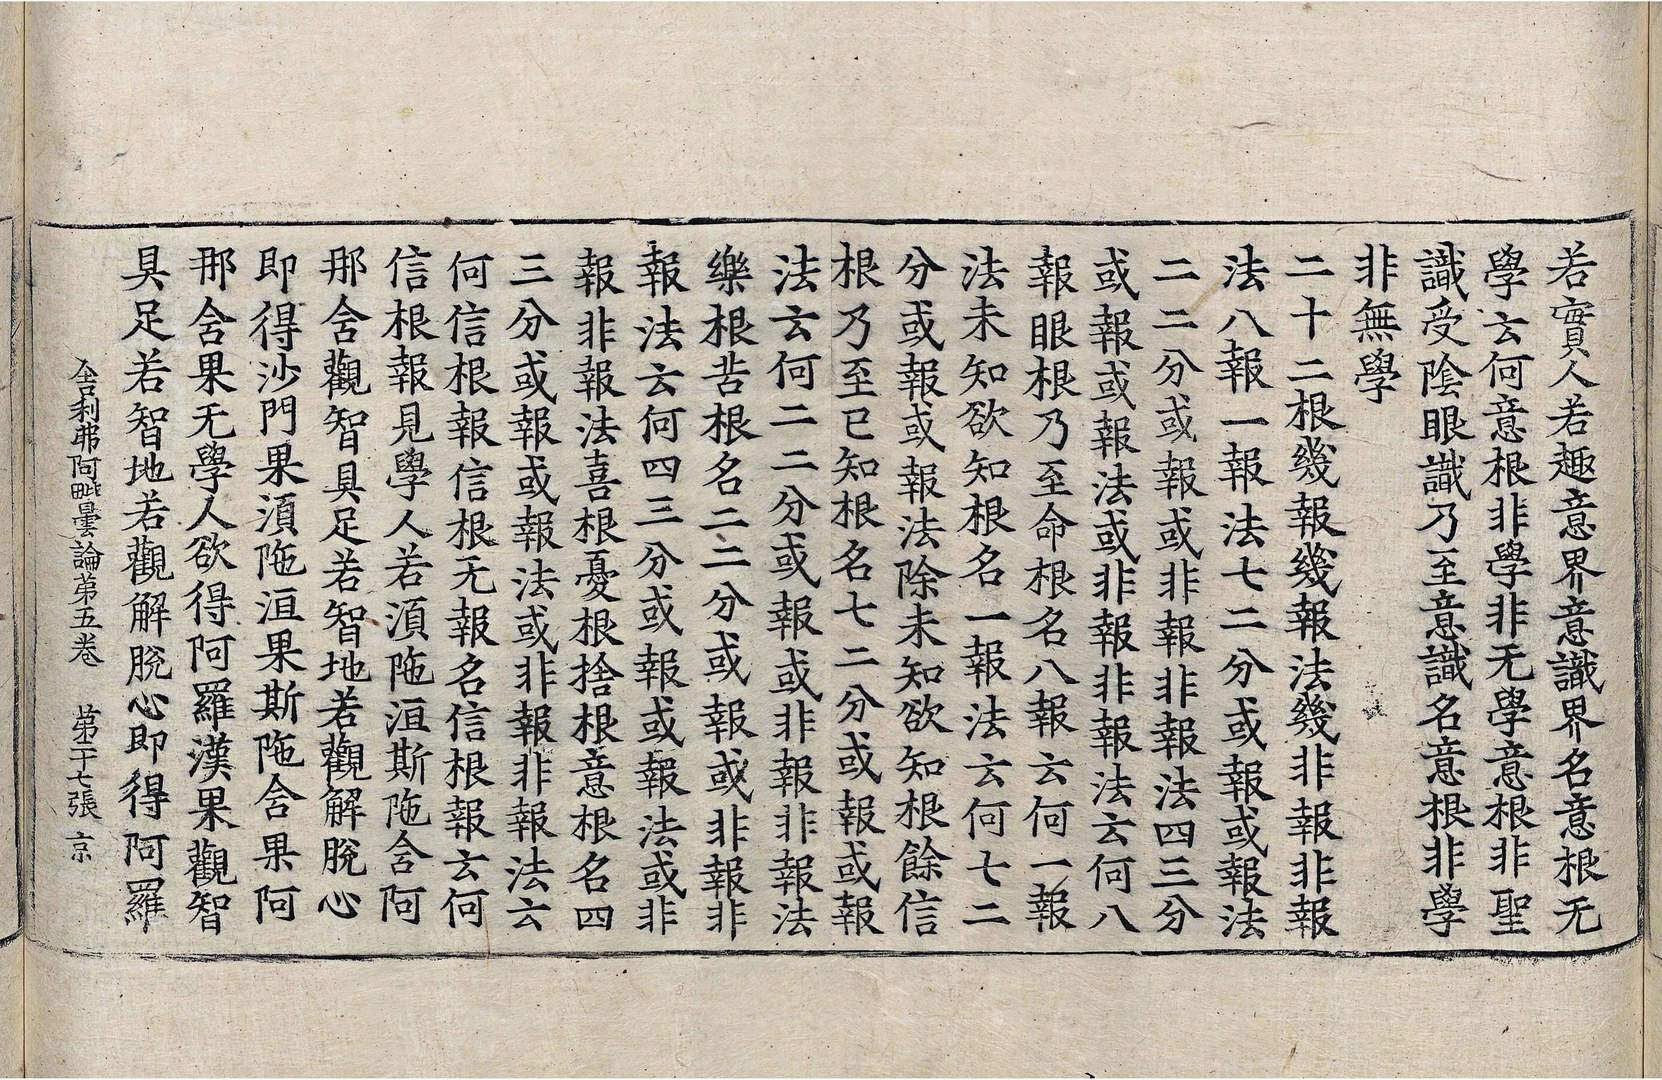 若實人若趣意界意識界名意根无
學云何意根非學非无學意根非聖
識受陰眼識乃至意識名意根非學
非無學
二十二根幾報幾報法幾非報非報
法八報一報法七二分或報或報法
二二分或報或非報非報法四三分
或報或報法或非報非報法云何八
報眼根乃至命根名八報云何一報
法未知欲知根名一報法云何七二
分或報或報法除未知欲知根餘信
根乃至已知根名七二分或報或報
法云何二二分或報或非報非報法
樂根苦根名二二分或報或非報非
報法云何四三分或報或報法或非
報非報法喜根憂根捨根意根名四
三分或報或報法或非報非報法云
何信根報信根无報名信根報云何
信根報見學人若湏陁洹斯陁含阿
那含觀智具足若智地若觀解脫心
即得沙門果湏陁洹果斯陁含果阿
那含果无學人欲得阿羅漢果觀智
具足若智地若觀解脫心即得阿羅
舍利弗阿毗曇論第五卷　第二十七張　京